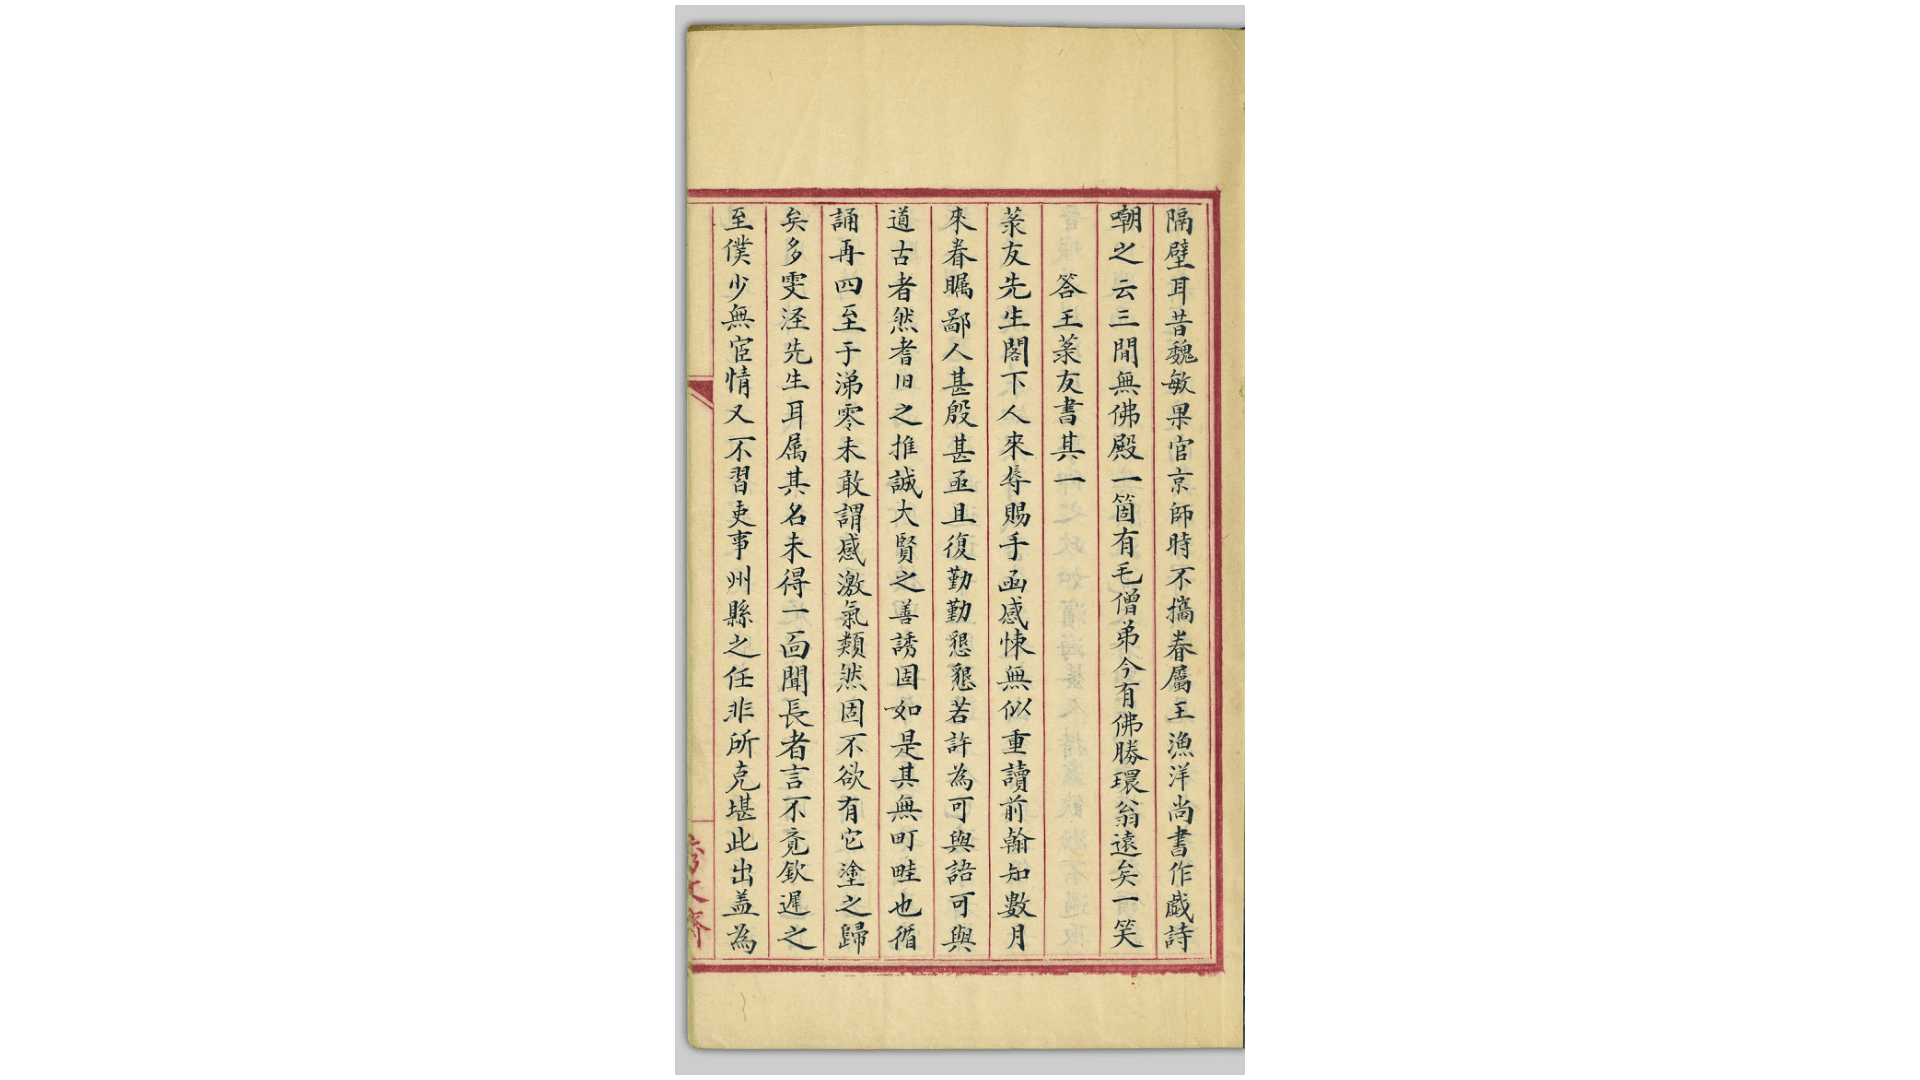 隔壁耳昔魏敏果官京師時不攜眷屬王漁洋尚書作戲詩
嘲之云三間無佛殿一箇有毛僧弟今有佛勝環翁遠矣一笑
答王菉友書其一
菉友先生閣下人來辱賜手函感悚無似重讀前翰知數月
來眷矚鄙人甚殷甚亟且復勤勤懇懇若許為可與語可與
道古者然耆旧之推誠大賢之善誘固如是其無町畦也循
誦再四至于涕零未敢謂感激氣類然固不欲有它塗之歸
矣多雯溼先生耳属其名未得一面聞長者言不竟欽遲之
至僕少無宦情又不習吏事州縣之任非所克堪此出盖為